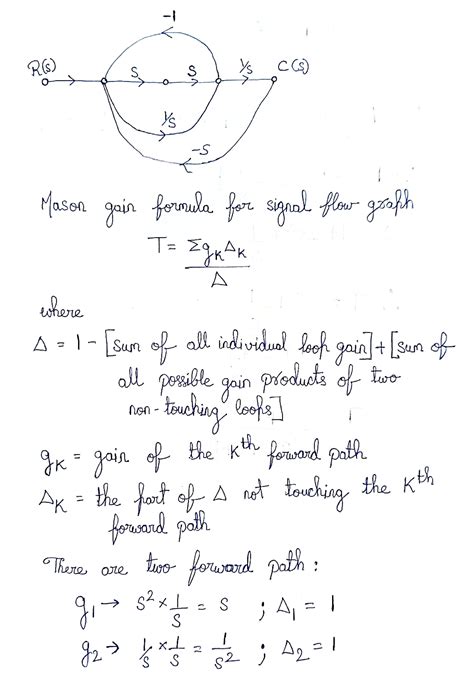 -1
R(s)
S S 1/S C(s)
1/S
-S
Mason gain formula for signal flow graph
T = Σ g_K Δ_K
Δ
where
Δ = 1 - [sum of all individual loop gain] + [sum of
all possible gain products of two
non-touching loops]
g_K = gain of the K^th forward path
Δ_K = the part of Δ not touching the K^th
forward path
There are two forward path :
g_1 → S^2 × 1/S = S ; Δ_1 = 1
g_2 → 1/S × 1/S = 1/S^2 ; Δ_2 = 1